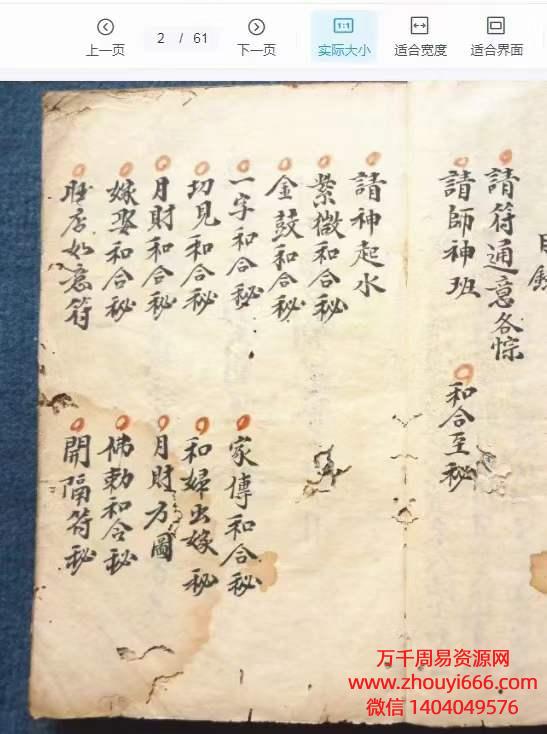 上一页
2 / 61
下一页
实际大小
适合宽度
适合界面
目錄
請符通意各悰
請師神班
和合至秘
請神起水
紫微和合秘
金鼓和合秘
一字和合秘
家傳和合秘
切見和合秘
和婦出嫁秘
月財和合秘
月財方圖
嫁娶和合秘
佛勅和合秘
旺店如意符
開隔符秘
万千周易资源网
www.zhouyi666.com
微信 1404049576